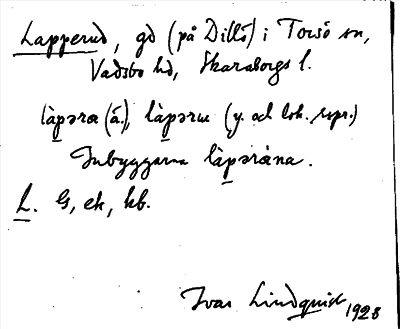 Lapperud, gd (på Dillö) i Torsö sn,
Vadsbo hd, Skaraborgs l.
làpəra (ä.), làpəru (y. och lok. repr.)
Inbyggarna làpəråna.
L. G, ek, kb.
Ivar Lindquist 1928